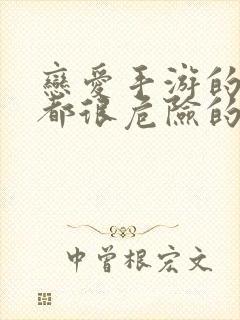 戀愛手游的
都很危險的
中曾根宏文